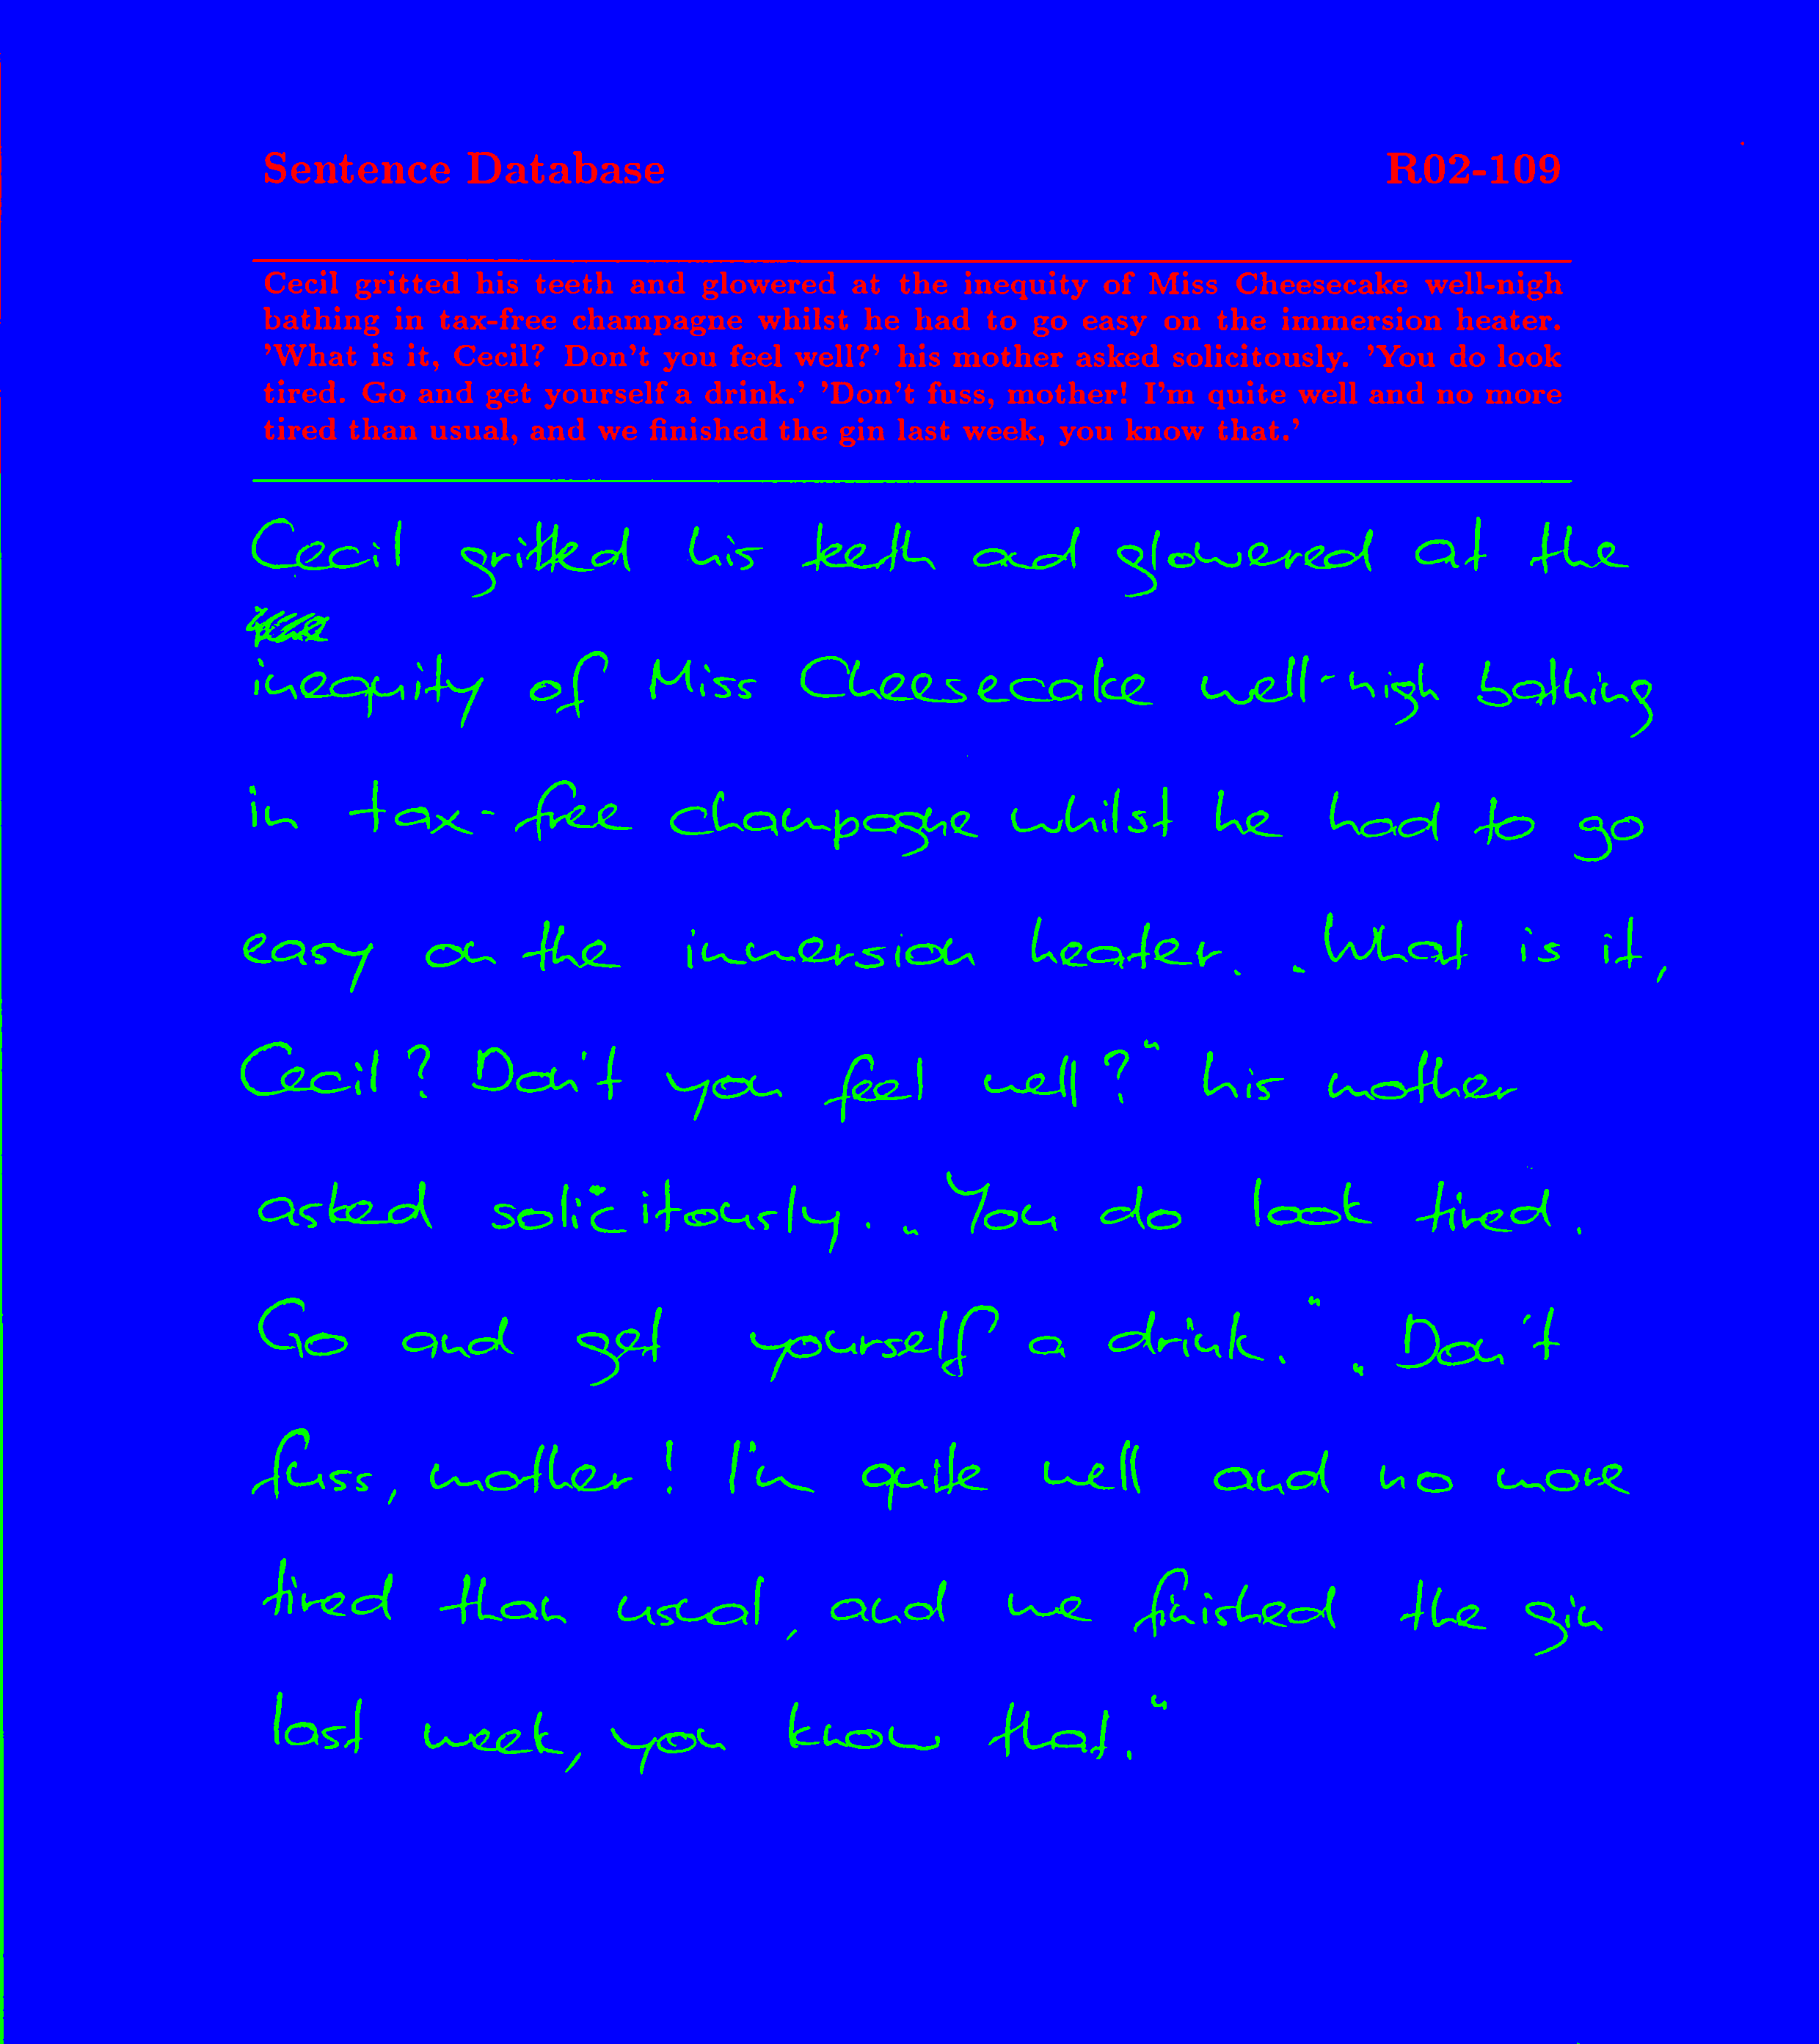 Sentence Database R02-109
Cecil gritted his teeth and glowered at the inequity of Miss Cheesecake well-nigh
bathing in tax-free champagne whilst he had to go easy on the immersion heater.
'What is it, Cecil? Don't you feel well?' his mother asked solicitously. 'You do look
tired. Go and get yourself a drink.' 'Don't fuss, mother! I'm quite well and no more
tired than usual, and we finished the gin last week, you know that.'
Cecil gritted his teeth and glowered at the
inequity of Miss Cheesecake well-nigh bathing
in tax-free champagne whilst he had to go
easy on the immersion heater. „What is it,
Cecil? Don't you feel well?“ his mother
asked solicitously. „You do look tired.
Go and get yourself a drink.“ „Don't
fuss, mother! I'm quite well and no more
tired than usual, and we finished the gin
last week, you know that.“